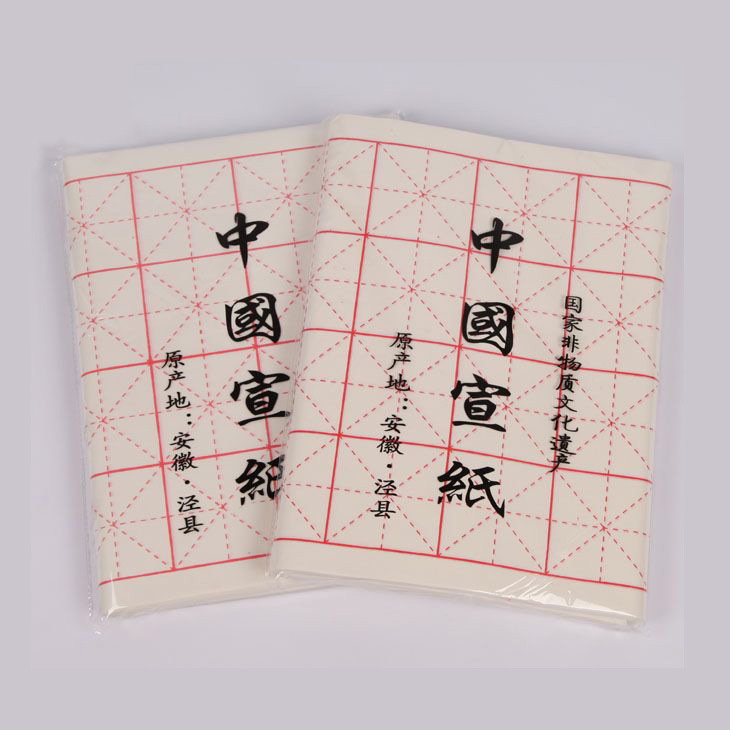 中國宣紙
原产地：安徽·泾县
国家非物质文化遗产
中國宣紙
原产地：安徽·泾县